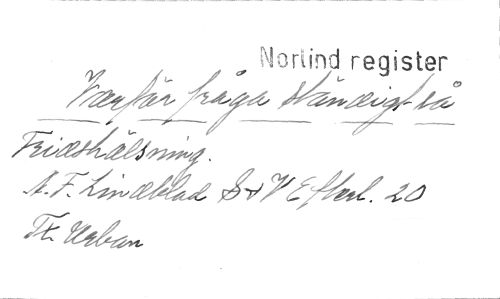 Norlind register
Varför fråga ständigt så
Fridshälsning.
A. F. Lindblad S + V Efterl. 20
Tx. Urban